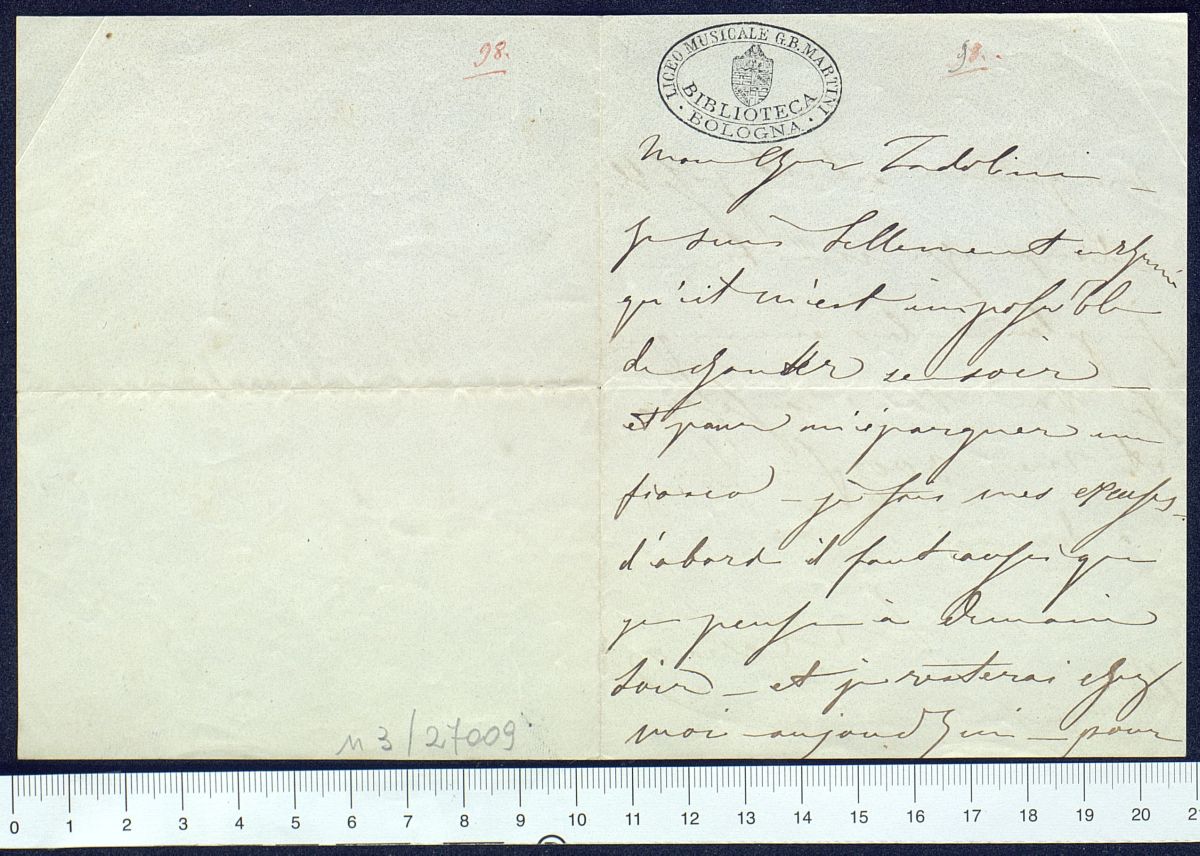 98.
98.
LICEO MUSICALE G.B. MARTINI
BIBLIOTECA
BOLOGNA
Mon cher Tadolini —
je suis tellement enrhumé
qu'il m'est impossible
de chanter ce soir —
et pour m'éparguer un
fiasco — je fais mes excuses —
d'abord il faut aussi que
je pense à demain
soir — et je resterai chez
moi aujourd'hui — pour
n 3/27009
0 1 2 3 4 5 6 7 8 9 10 11 12 13 14 15 16 17 18 19 20 21